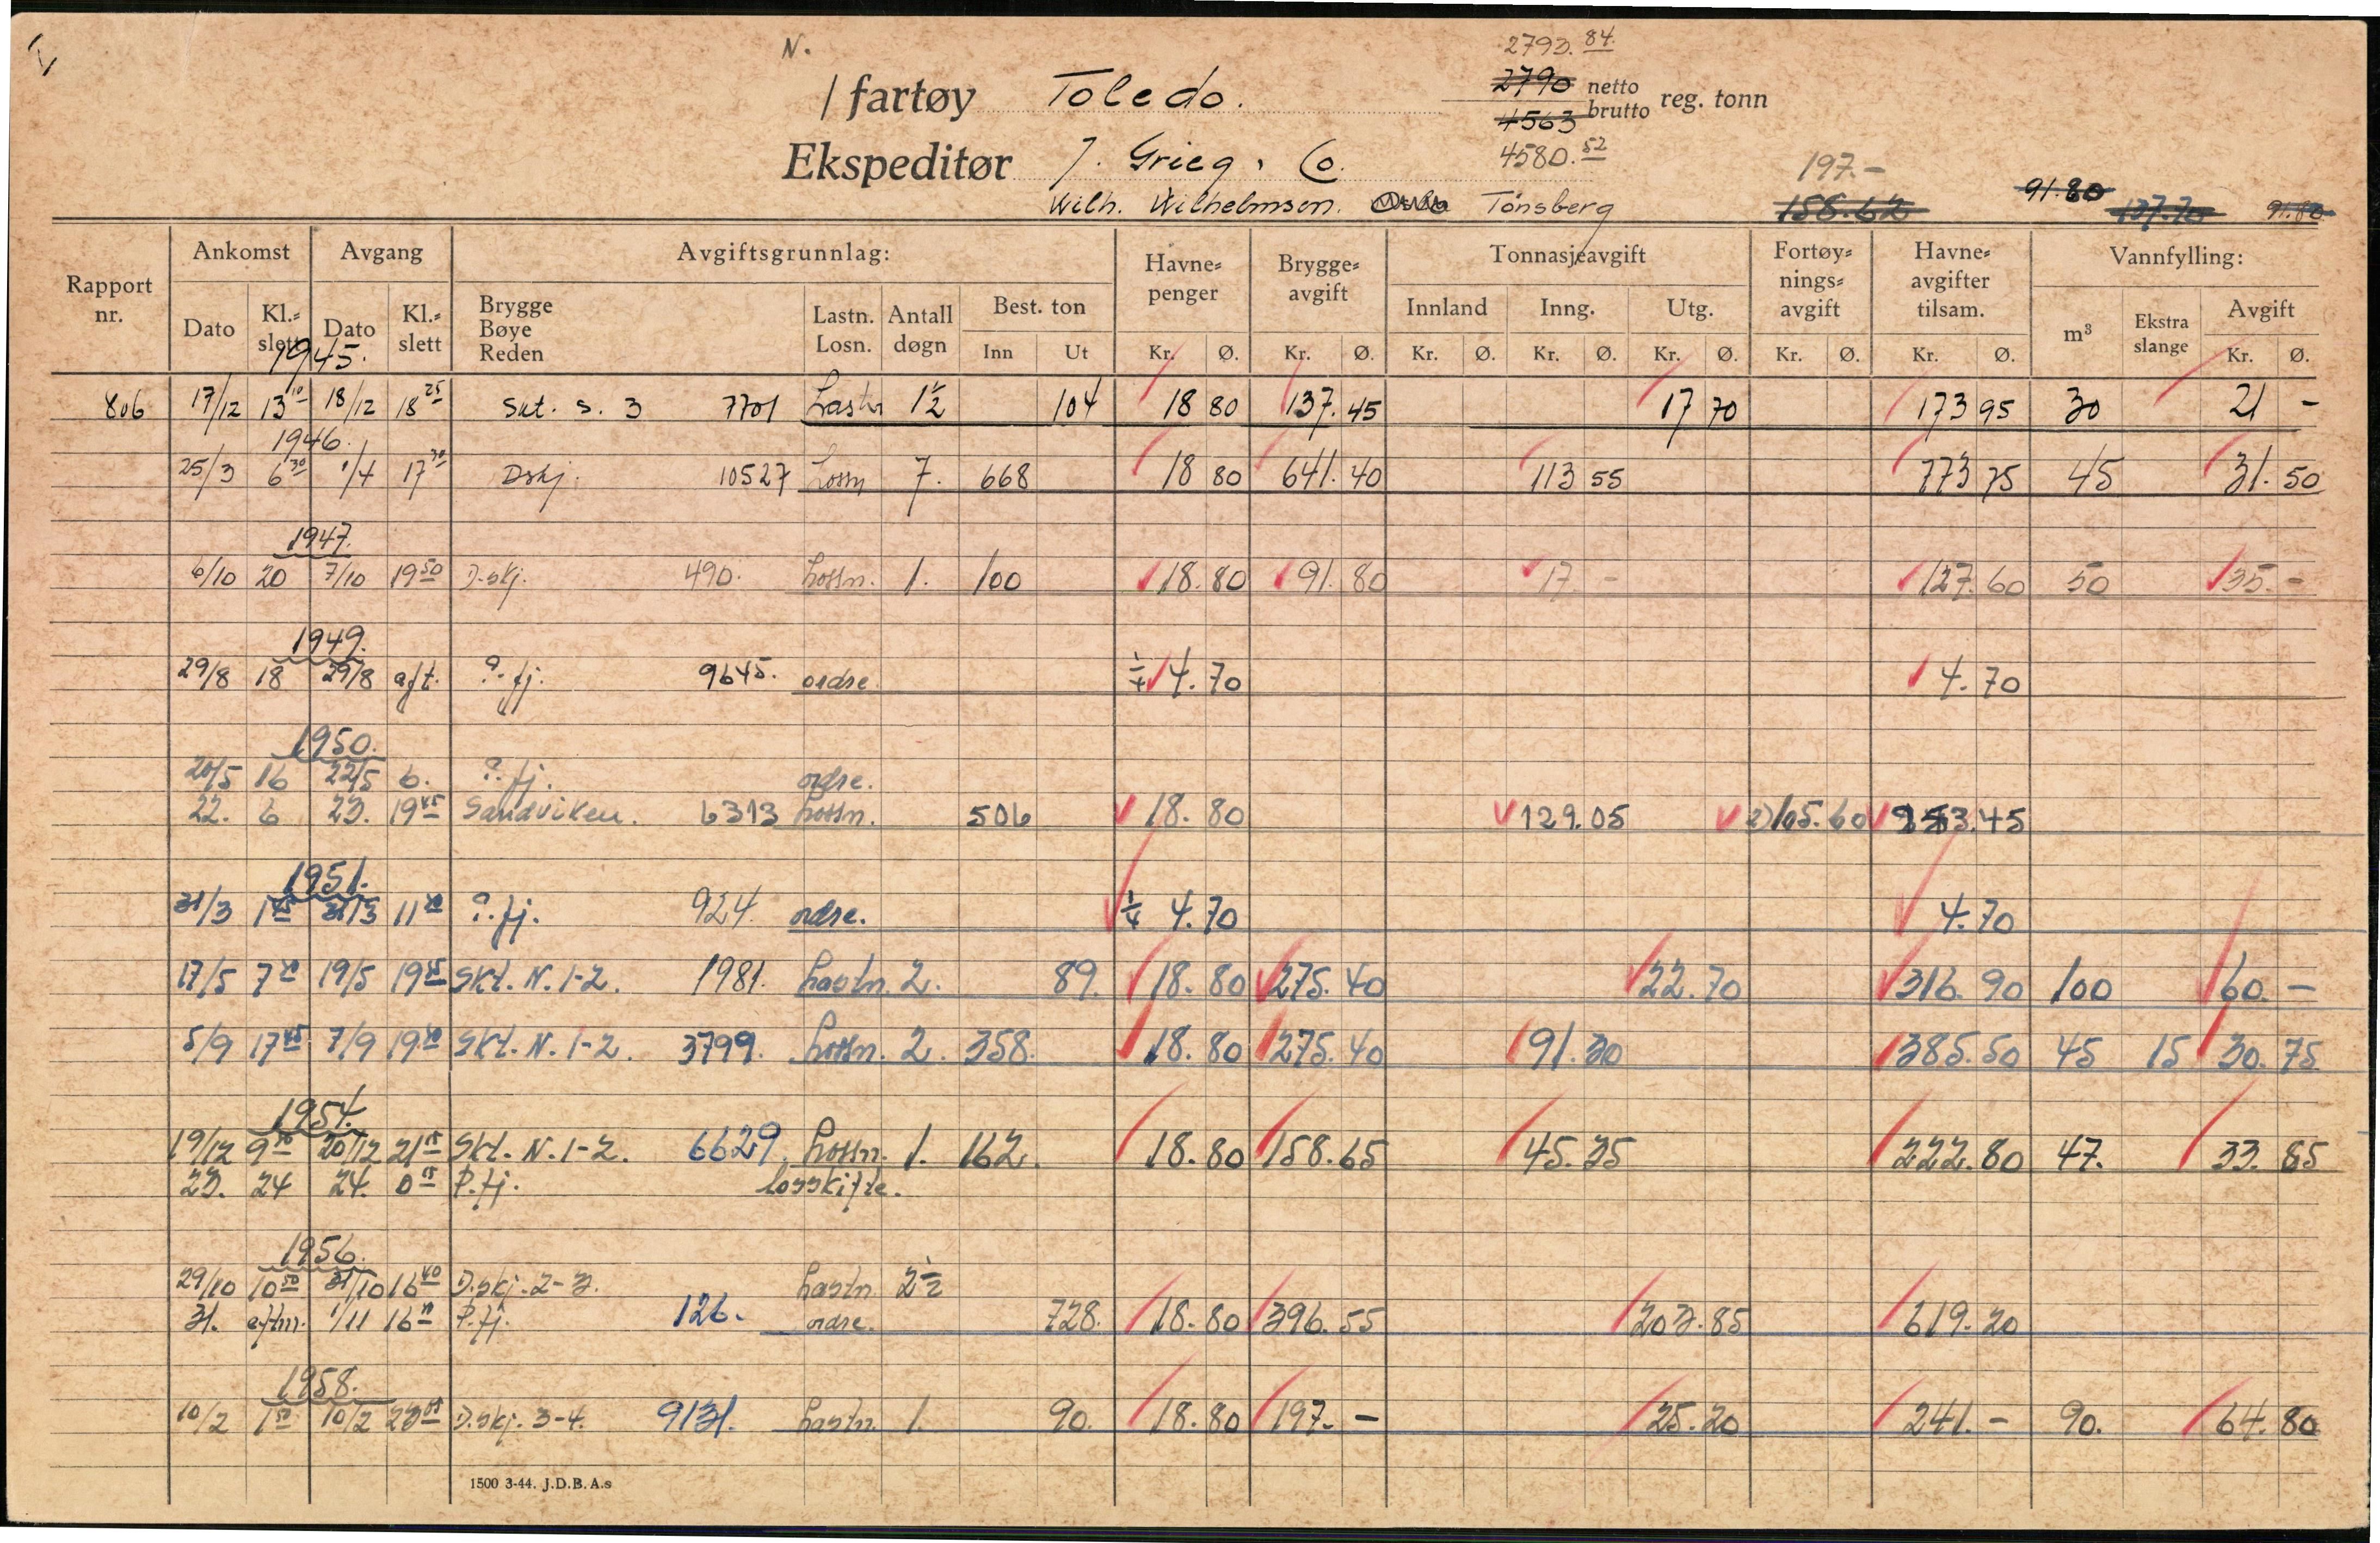 N.
2793.84
/ fartøy Toledo. 2790 netto
4563 brutto reg. tonn
Ekspeditør J. Grieg & Co. 4580.52
197.-
Wilh. Wilhelmsen. Oslo Tønsberg 158.62 91.80 137.70 91.80
Rapport nr. Ankomst Avgang Avgiftsgrunnlag: Havne-penger Brygge-avgift Tonnasjeavgift Fortøy-nings-avgift Havne-avgifter tilsam. Vannfylling:
Dato Kl.-slett Dato Kl.-slett Brygge Bøye Reden Lastn. Losn. Antall døgn Best. ton Innland Inng. Utg. m³ Ekstra slange Avgift
Inn Ut Kr. Ø. Kr. Ø. Kr. Ø. Kr. Ø. Kr. Ø. Kr. Ø. Kr. Ø. Kr. Ø.
1945.
806 17/12 13 10 18/12 18 25 Skt. s. 3 7701 Lastn 1½ 104 18 80 137.45 17 70 173 95 30 21 -
1946.
25/3 6 30 1/4 17 30 Dskj. 10527 Lossn 7. 668 18 80 641.40 113 55 773 75 45 31.50
1947.
6/10 20 7/10 19 50 D.skj. 490. Lossn. 1. 100 18.80 91.80 17 - 127.60 50 35.-
1949.
29/8 18 29/8 aft. P.fj. 9645. ordre. ¼ 4.70 4.70
1950.
20/5 16 22/5 6. P.fj. ordre.
22. 6 23. 19 45 Sandviken. 6313 Lossn. 506 18.80 129.05 2) 105.60 253.45
1951.
31/3 1 45 31/3 11 20 P.fj. 924. ordre. ¼ 4.70 4.70
17/5 7 20 19/5 19 45 Skt. N. 1-2. 1981. Lastn. 2. 89. 18.80 275.40 22.70 316.90 100 60.-
5/9 17 45 7/9 19 20 Skt. N. 1-2. 3799. Lossn. 2. 358. 18.80 275.40 91.30 385.50 45 15 30.75
1954.
19/12 9 20/12 21 15 Skt. N. 1-2. 6629. Lossn. 1. 162. 18.80 158.65 45.35 222.80 47. 33.85
23. 24 24. 0 15 P.fj. losskifte.
1956.
29/10 10 50 31/10 16 40 D.skj. 2-3. Lastn 2½
31. eftm. 1/11 16 P.fj. 126. ordre. 728. 18.80 396.55 203.85 619.20
1958.
10/2 1 50 10/2 23 05 D.skj. 3-4. 9131. Lastn. 1. 90. 18.80 197.- 25.20 241.- 90. 64.80
1500 3-44. J.D.B.A.s